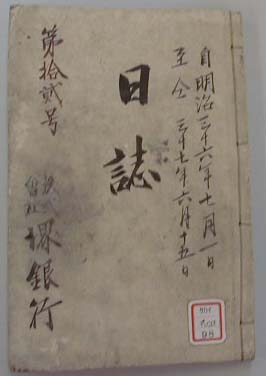 自明治三十六年七月一日
至仝三十七年六月十五日
日誌
第拾貳号
株式会社堺銀行